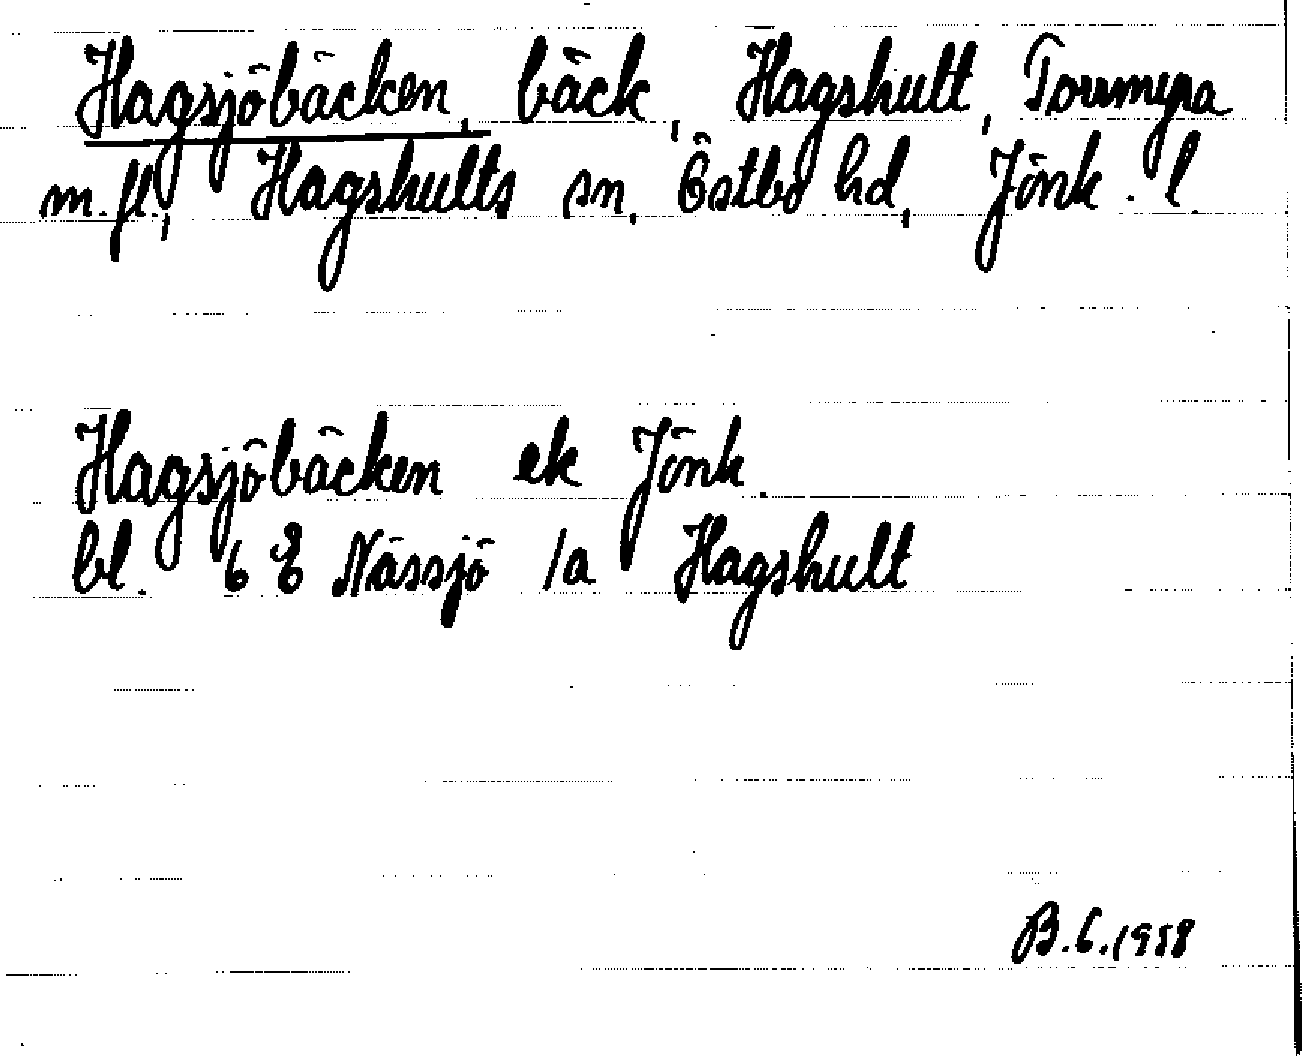 Hagsjöbäcken, bäck, Hagshult, Tormyra
m.fl., Hagshults sn, Östbo hd, Jönk. l.
Hagsjöbäcken ek Jönk.
bl. 6 E Nässjö /a Hagshult
B.C. 1958